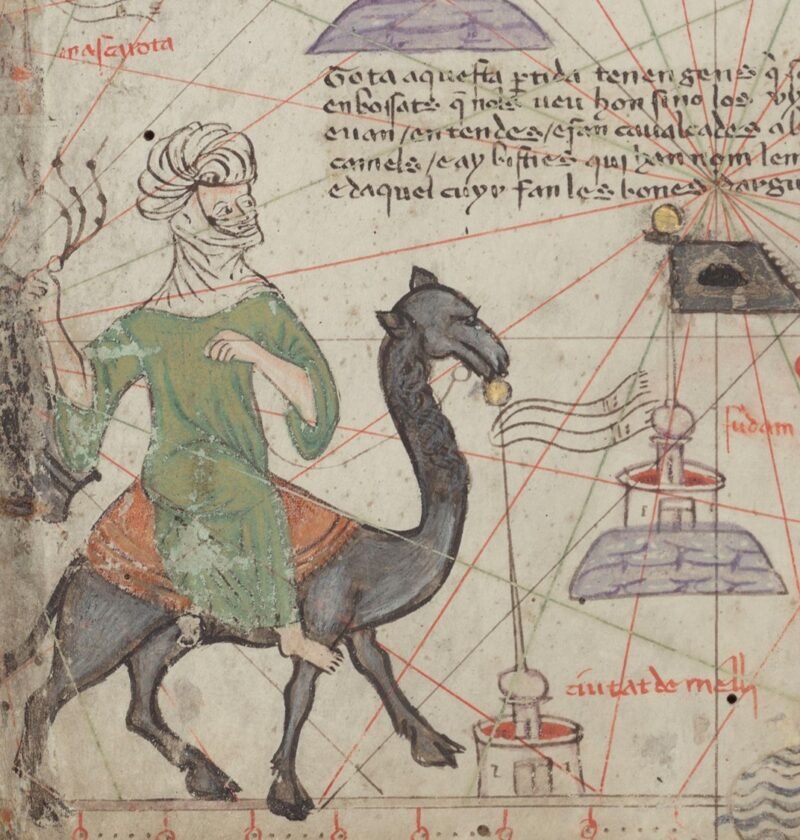 mascarota
Tota aquesta ptida tenen gens q̃ s
enbossats q̃ nols veu hon sino los vy
euan / en tendes / e fan caualcades ab
camels / e ay bisties qui han nom lem
e daquel cuyr fan les bones darga
sudam
ciutat de melly